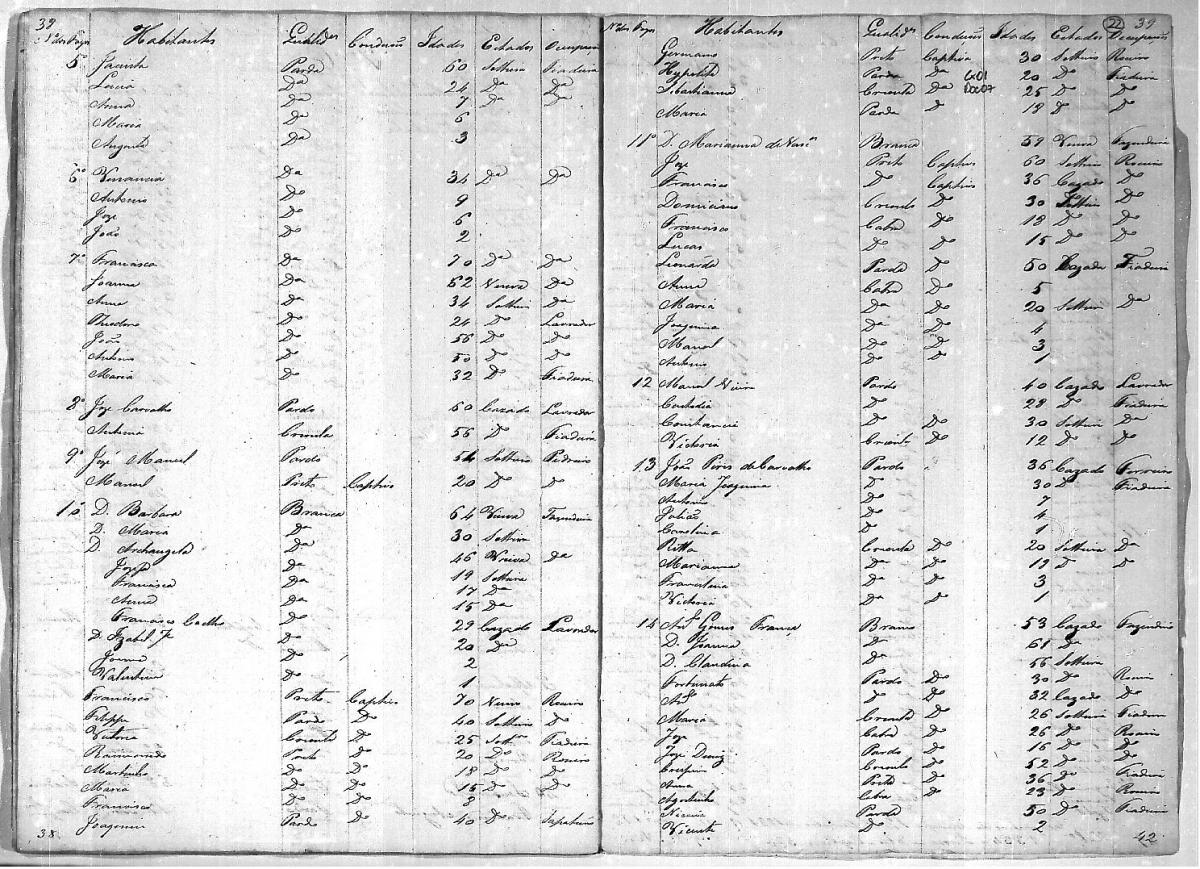 39
Nos dos Fogos Habitantes Qualides Condições Idades Estados Occupações
5º Jacinta Parda 60 Solteira Fiadeira
Luzia Da 24 Da Da
Anna Da 7 Da Da
Maria Da 6
Augusta Da 3
6º Venancia Da 34 Da Da
Antonio Do 9
Joze Do 6
João Do 2
7º Francisca Da 70 Da Da
Joanna Da 62 Veuva Da
Anna Da 34 Solteira Da
Theodoro Do 24 Do Lavrador
João Do 56 Do Do
Antonio Do 50 Do Do
Maria Do 32 Do Fiadeira
8º Joze Carvalho Pardo 60 Cazado Lavrador
Antonia Crioula 56 Do Fiadeira
9º José Manoel Pardo 54 Solteiro Pedreiro
Manoel Preto Captivo 20 Do Do
10 D. Barbara Branca 64 Veuva Fazendeira
D. Maria Da 30 Solteira
D. Archangela Da 46 Veuva Da
Jozefa Da 19 Solteira
Francisca Da 17 Da
Anna Da 15 Da
Francisco Coelho 29 Cazado Lavrador
D. Izabel Fa Do 20 Da
Joanna Do 2
Valentina Do 1
Francisco Preto Captivo 70 Veuvo Roceiro
Felippe Pardo Do 40 Solteiro Do
Victoria Crioula Do 25 Soltra Fiadeira
Raimundo Preto Do 20 Do Roceiro
Martinho Do Do 18 Do Do
Maria Do Do 15 Do Do
Francisca Do Do 8
Joaquim Pardo Do 40 Do Sapateiro
38
22 39
Nos dos Fogos Habitantes Qualides Condições Idades Estados Occupações
Germano Preto Captivo 30 Solteiro Roceiro
Hypolita Parda Da 20 Do Fiadeira
CX01
DOC07
Sebastianna Crioula Da 25 Do Do
Maria Parda Do 18 Do Do
11º D. Marianna de Vascos Branca 59 Veuva Fazendeira
Joze Preto Captivo 60 Solteiro Roceiro
Francisco Do Captivo 36 Cazado Do
Domiciano Crioulo Do 30 Solteiro Do
Francisco Cabra Do 18 Do Do
Lucas Do Do 15 Do Do
Leonarda Parda Do 50 Cazada Fiadeira
Anna Cabra Do 5
Maria Da Do 20 Solteira Da
Joaquina Da Do 4
Manoel Do Do 3
Antonio Do Do 1
12 Manoel Vieira Pardo 40 Cazado Lavrador
Custodia Do 28 Do Fiadeira
Constancia Do Do 30 Solteira Da
Victoria Crioula Do 12 Do Do
13 João Pires de Carvalho Pardo 36 Cazado Ferreiro
Maria Joaquina Do 30 Do Fiadeira
Antonio Do 7
Julião Do 4
Carolina Do 1
Ritta Crioula Do 20 Solteira Da
Marianna Da Do 19 Do Do
Francelina Da Do 3
Victoria Da Do 1
14 Anto Gomes Franca Branco 53 Cazado Fazendeiro
D. Joanna Da 61 Da
D. Claudina Da 56 Solteira
Fortunato Pardo Do 30 Do Roceiro
Anto Do Do 32 Cazado Do
Maria Crioula Do 26 Solteira Fiadeira
Joze Cabra Do 26 Do Roceiro
Joze Diniz Pardo Do 16 Do Do
Crespim Crioulo Do 52 Do Do
Anna Preta Do 36 Do Fiadeira
Agostinho Cabra Do 23 Do Roceiro
Parda 50 Do Fiadeira
Vicente Do 2
42